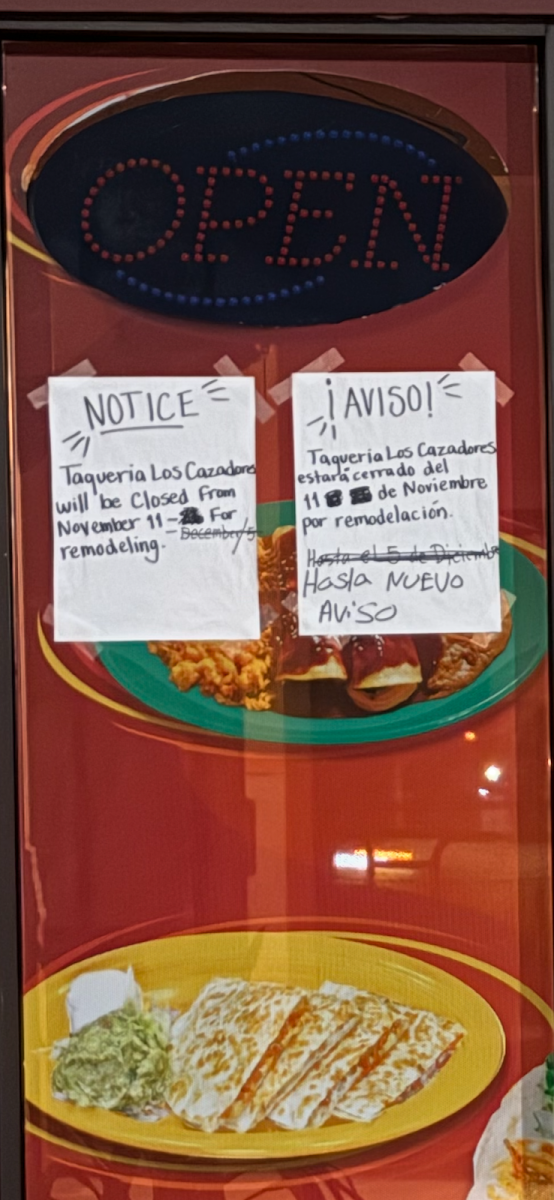 OPEN
NOTICE
Taqueria Los Cazadores
will be Closed From
November 11 - For
December/5
remodeling.
¡AVISO!
Taqueria Los Cazadores
estará cerrado del
11 de Noviembre
por remodelación.
Hasta el 5 de Diciembre
Hasla NUEVO
AViSO